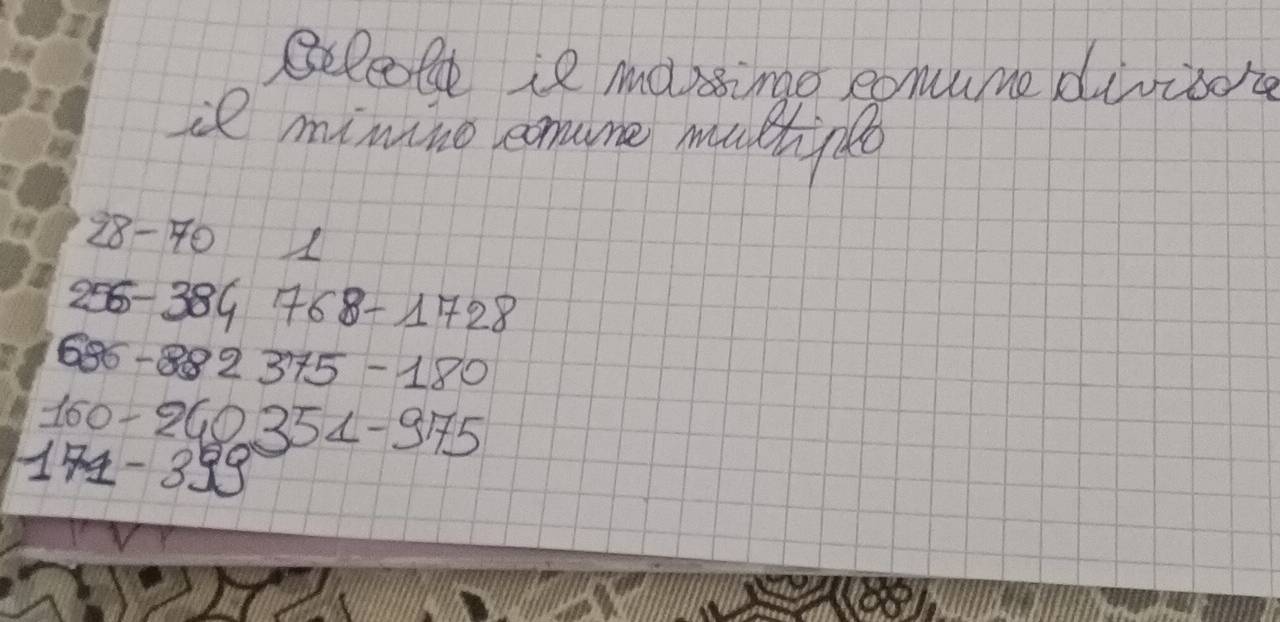 Calcola il massimo comune divisore
il minimo comune multiplo
28-70 1
256-384 768-1728
686-882 375-180
160-240 351-975
171-399